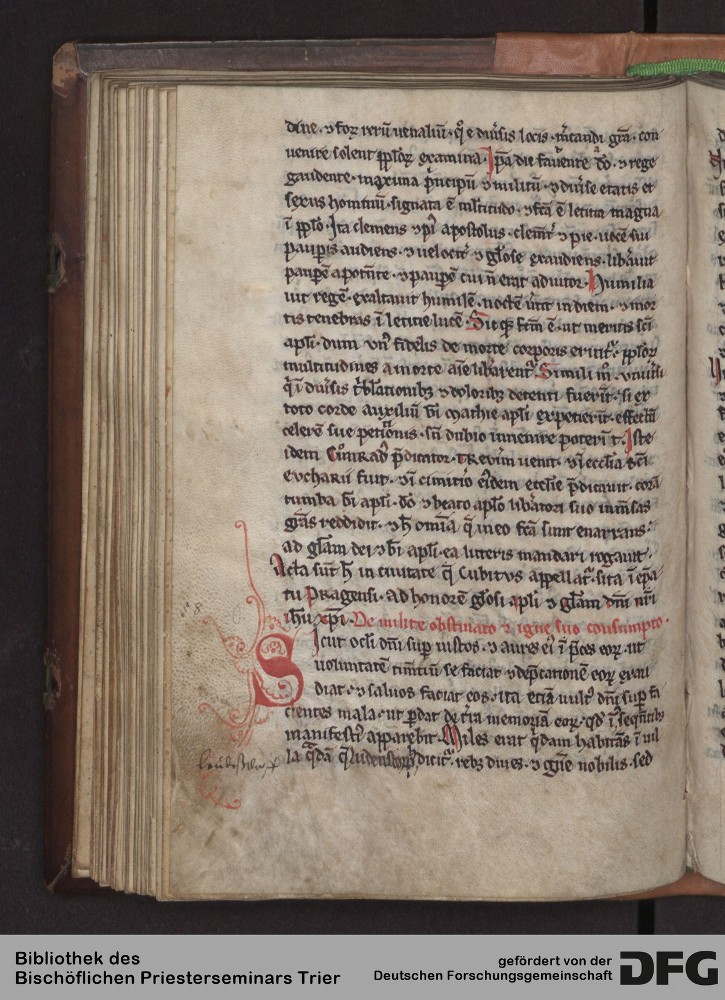 dine · ⁊ foꝝ rerū uenaliū · q̄ e diu̾sis locis · m̄candi gr̄a · con
uenire solent pp̄loꝝ examina · Ip̄a die fauente dō · ⁊ rege
gaudente · maxima p̄ncipū ⁊ militū · ⁊ diu̾se etatis et
sexus hominū · signata ē ml̄titudo · ⁊ fc̄a ē letitia magna
ī pp̄lo · Ita clemens ⁊ pi᷒ apostolus · clemt̄ ⁊ pie · uocē sui
paup̄is audiens · ⁊ uelocit̄ ⁊ gl̄ose exaudiens · lib̾auit
paup̄ē a potn̄te · ⁊ paup̄ē cui n̄ erat adiutor · Humilia
uit regē · exaltauit humilē · noctē ūtit in diem · ⁊ mor
tis tenebras ī letitie lucē · Sicq̨ fc̄m ē · ut meritis sc̄i
apl̄i · dum vn᷒ fidelis de morte corporis eruit̄ · pp̄loꝝ
multitudines a morte aīe lib̾arent̄ · Simili m̄ · vniu̾si
q̄ ī diu̾sis t̾bl̄ationibꝫ ⁊ doloribꝫ detenti fuer̄t · si ex
toto corde auxiliū bī Mathie apl̄i expetier̄t · effectū
celerē sue petic̄onis · sn̄ dubio inuenire poter̄t · Iste
idem Conrad᷒ p̄dicator · Treverim uenit · ⁊ ī ecclīa sc̄i
Evcharii fuit · ⁊ ī cimit̄io ei᷒dem ecclīe p̄dicauit · corā
tumba bī apl̄i · dō ⁊ beato apl̄o lib̾atori suo inm̄sas
gr̄as reddidit · ⁊ h̄ omīa q̄ in eo fc̄a sunt enarrans ·
ad gl̄am dei ⁊ bī apl̄i · ea litteris mandari rogauit ·
Acta sūt h̄ in ciuitate q̄ Cubitvs appellat̄ · sita ī ep̄a
tu Pragensi · ad honorē gl̄osi apl̄i ⁊ gl̄am dn̄i nr̄i
ih̄u xp̄i · De milite obstinato ⁊ igne suo consumpto ·
Sicut oc̄li dn̄i sup̄ iustos · ⁊ aures ei᷒ ī p̄ces eoꝝ · ut
uoluntatē timētiū se faciat ⁊ dep̄cationē eoꝝ exau
diat · ⁊ saluos faciat eos · ita etiā uult᷒ dn̄i sup̄ fa
cientes mala · ut p̄dat de t̄ra memoriā eoꝝ · qd̄ ī seq̄ntibꝫ
manifeste apparebit · Miles erat q̄dam habitās ī uil
la q̄dā q̄ Ludenstorp dicit̄ · rebꝫ diues · ⁊ gn̄e nobilis · sed
58
Bibliothek des
Bischöflichen Priesterseminars Trier
gefördert von der
Deutschen Forschungsgemeinschaft
DFG